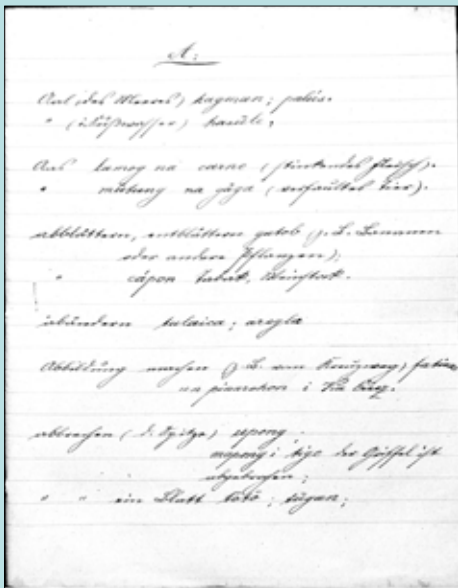 A.
Aal (des Meeres) hagman; palús.
" (Süßwasser) hasule.
Aas lamog na carne (stinkendes Fleisch).
" mutung na gâga (verfaultes Tier).
abblättern, entblättern gatob (z. B. Bananen
oder andere Pflanzen);
" cápon Tabak, Weinstock.
abändern tulaica; aregla
Abbildung machen (z. B. vom Kreuzweg) fatinas
na pinarohon i Via
abbrechen (d. Spitze) upong,
mapong i tigo der Griffel ist
abgebrochen;
" " ein Blatt tótó; tugan;